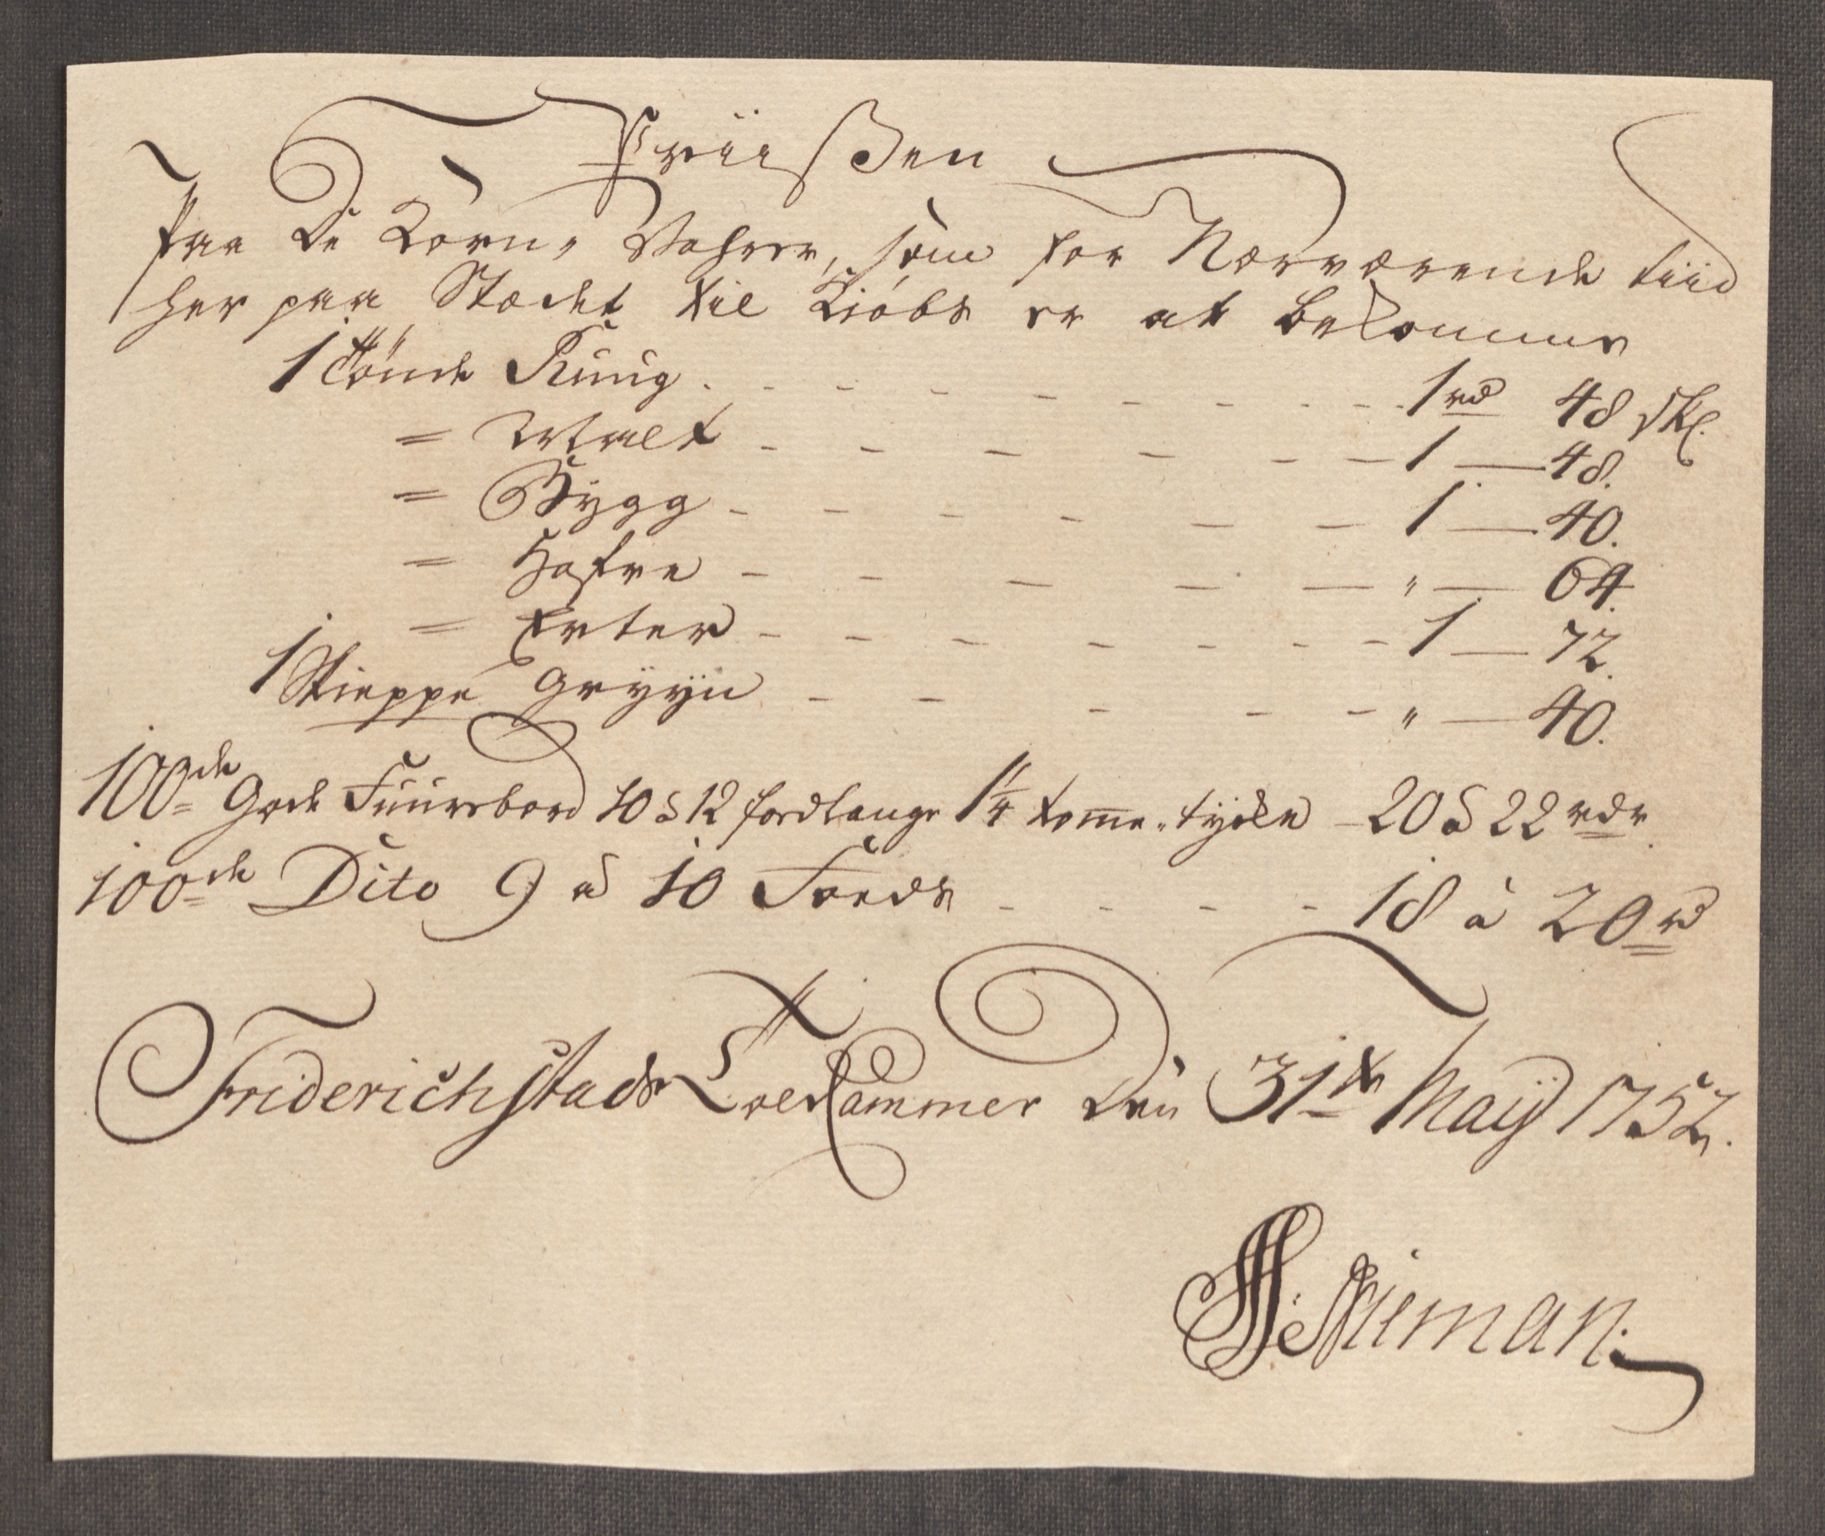 Priisen
Paa De Korn, Vahrer, som for Nærværende tiid
her paa Stædet til Kiøbs er at bekomme
1 Tønde Ruug - - - 1 rd 48 skl.
= Malt - - - 1 — 48.
= Bygg - - - 1 — 40.
= Hafre - - - " — 64.
= Erter - - - 1 — 72.
1 Skieppe Gryyn - - - " — 40.
100de Gode Fuursbord 10 à 12 fodlange 1¼ tomme tyche - 20 à 22 rdr.
100de Dito 9 à 10 Foeds - - - 18 à 20 rd
Friderichstads Toldkammer den 31te Maij 1752.